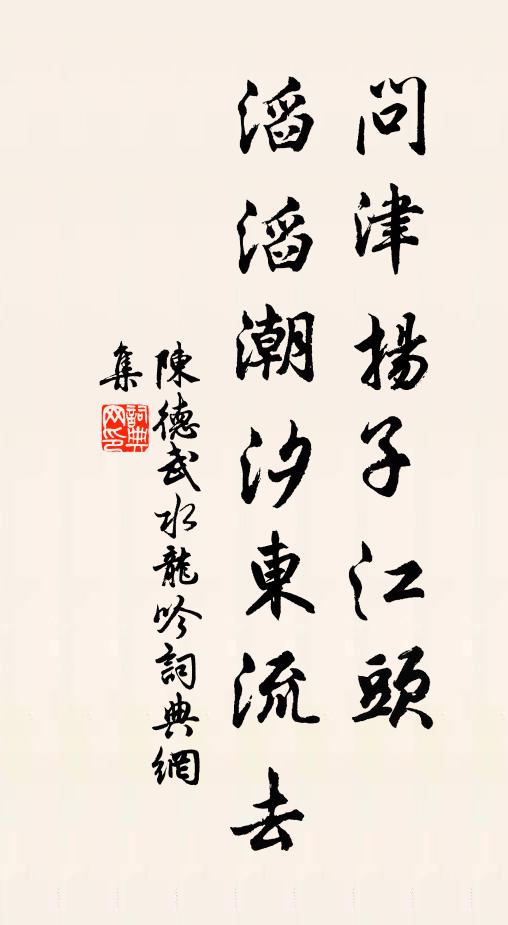 問津揚子江頭
滔滔潮汐東流去
陳德武水龍吟詞典網
集
詞典
网印